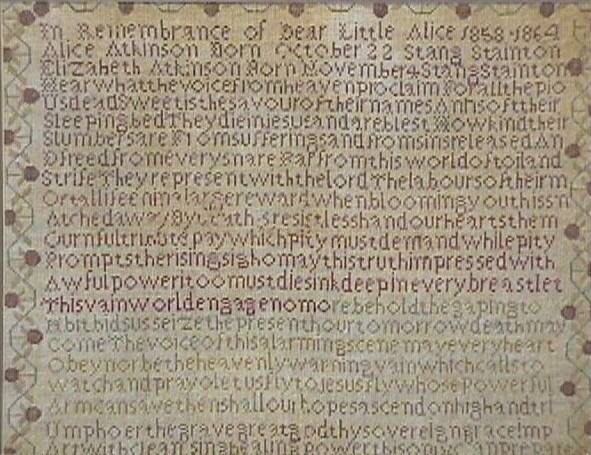 In Remembrance of Dear Little Alice 1858-1864
Alice Atkinson Born October 22 Stang Stainton
Elizabeth Atkinson Born November 4 Stang Stainton
Hearwhatthevoicefromheavenproclaim Forallthepio
UsdeadSweetisthesavouroftheirnamesAndsofttheir
SleepingbedTheydieinjesusandareblest Howkindtheir
Slumbersare Fromsufferingsandfromsinsreleased An
DfreedfromeverysnareFarfromthisworldoftoiland
StrifeTheyrepresentwiththelordThelaboursoftheirm
Ortallifeeninalargerewardwhenbloomingyouthissn
AtchedawayBydeathsresistlesshandourheartsthem
Ournfultributepaywhichpitymustdemandwhilepity
Promptstherisingsighomaythistruthimpressedwith
Awfulpoweritoomustdiesinkdeepineverybreastlet
Thisvainworldengagenomorebeholdthegapingto
Mbitbidsusseizethepresenthourtomorrowdeathmay
ComeThevoiceofthisalarmingscenemayeveryheart
Obeynorbetheheavenlywarningvainwhichcallsto
WatchandprayoletusflytojesusflywhosePowerful
Armcansavethenshallourhopesascendonhighandtri
Umphoerthegravegreatgodthysovereigngraceimp
Artwithcleansinghealingpowerthis